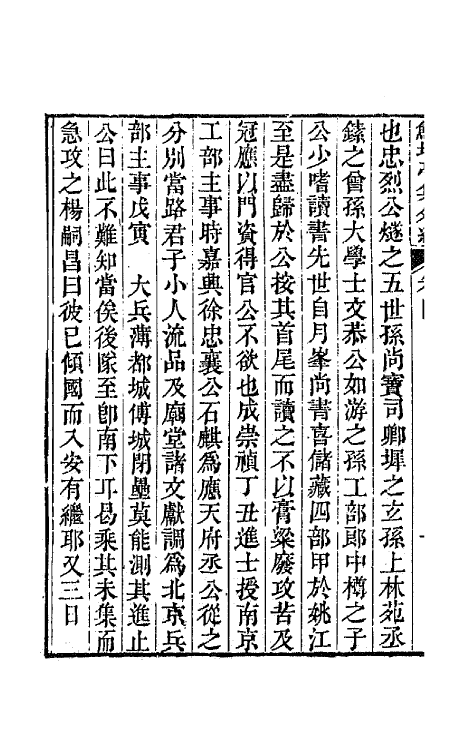 也忠烈公燧之五世孫尚寶司卿墀之玄孫上林苑丞
鏼之曾孫大學士文恭公如游之孫工部郎中樽之子
公少嗜讀書先世自月峯尚書喜儲藏四部甲於姚江
至是盡歸於公按其首尾而讀之不以膏粱廢攻苦及
冠應以門資得官公不欲也成崇禎丁丑進士授南京
工部主事時嘉興徐忠襄公石麒為應天府丞公從之
分別當路君子小人流品及廟堂諸文獻調為北京兵
部主事戊寅　大兵薄都城傅城閉壘莫能測其進止
公曰此不難知當俟後隊至卽南下耳曷乘其未集而
急攻之楊嗣昌曰彼已傾國而入安有繼耶又三日